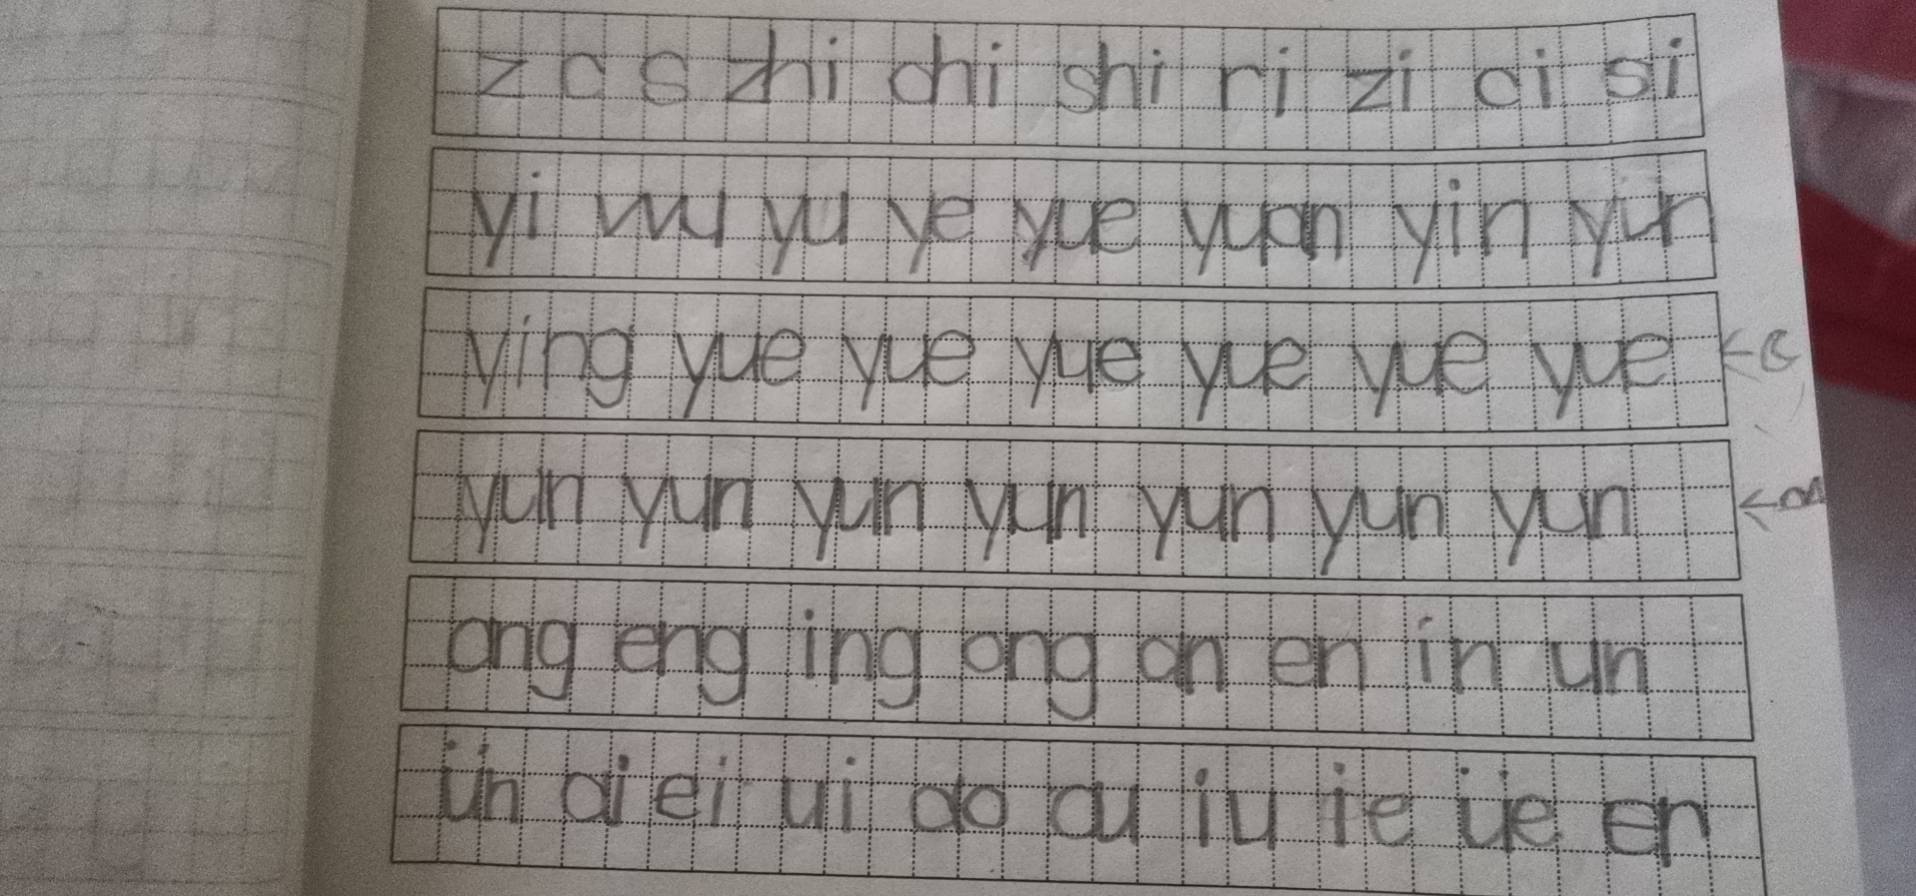 z c s zhi chi shi ri zi ci si
yi wu yu ye yue yuan yin yun
ying yue yue yue yue yue yue
yun yun yun yun yun yun yun
ang eng ing ong an en in un
ün ai ei ui ao ou iu ie üe er